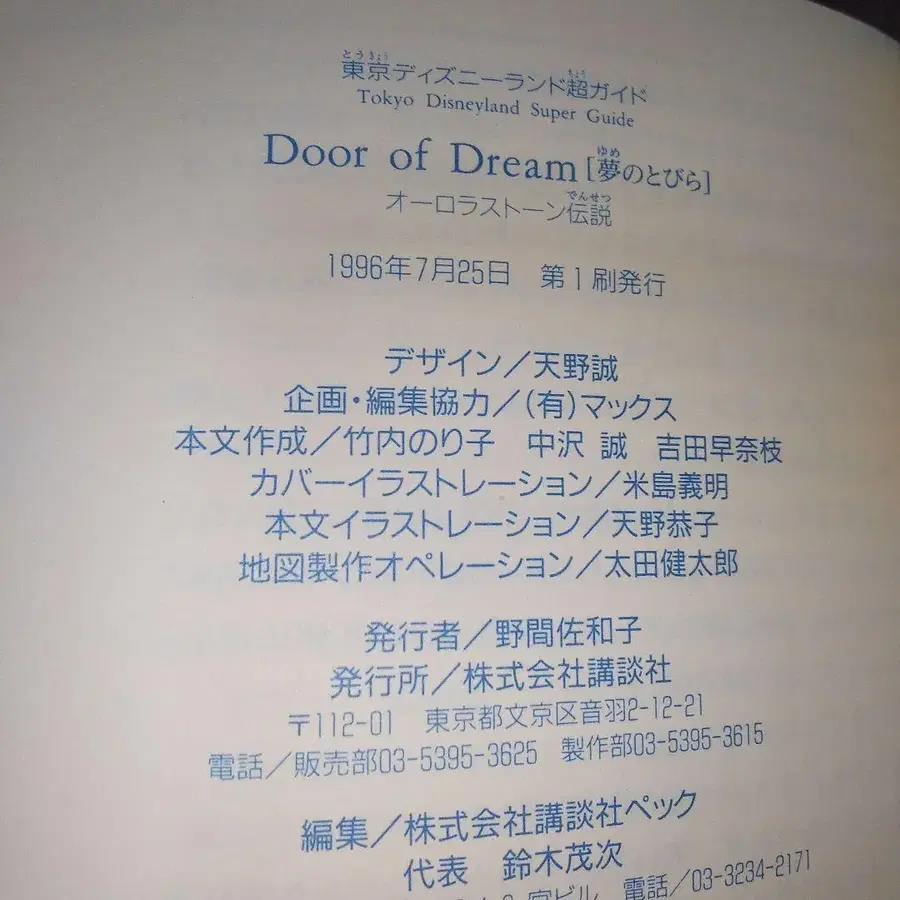 東京ディズニーランド超ガイド
Tokyo Disneyland Super Guide
Door of Dream [夢のとびら]
オーロラストーン伝説
1996年7月25日 第1刷発行
デザイン/天野誠
企画・編集協力/(有)マックス
本文作成/竹内のり子 中沢 誠 吉田早奈枝
カバーイラストレーション/米島義明
本文イラストレーション/天野恭子
地図製作オペレーション/太田健太郎
発行者/野間佐和子
発行所/株式会社講談社
〒112-01 東京都文京区音羽2-12-21
電話/販売部03-5395-3625 製作部03-5395-3615
編集/株式会社講談社ペック
代表 鈴木茂次
ビル 電話/03-3234-2171